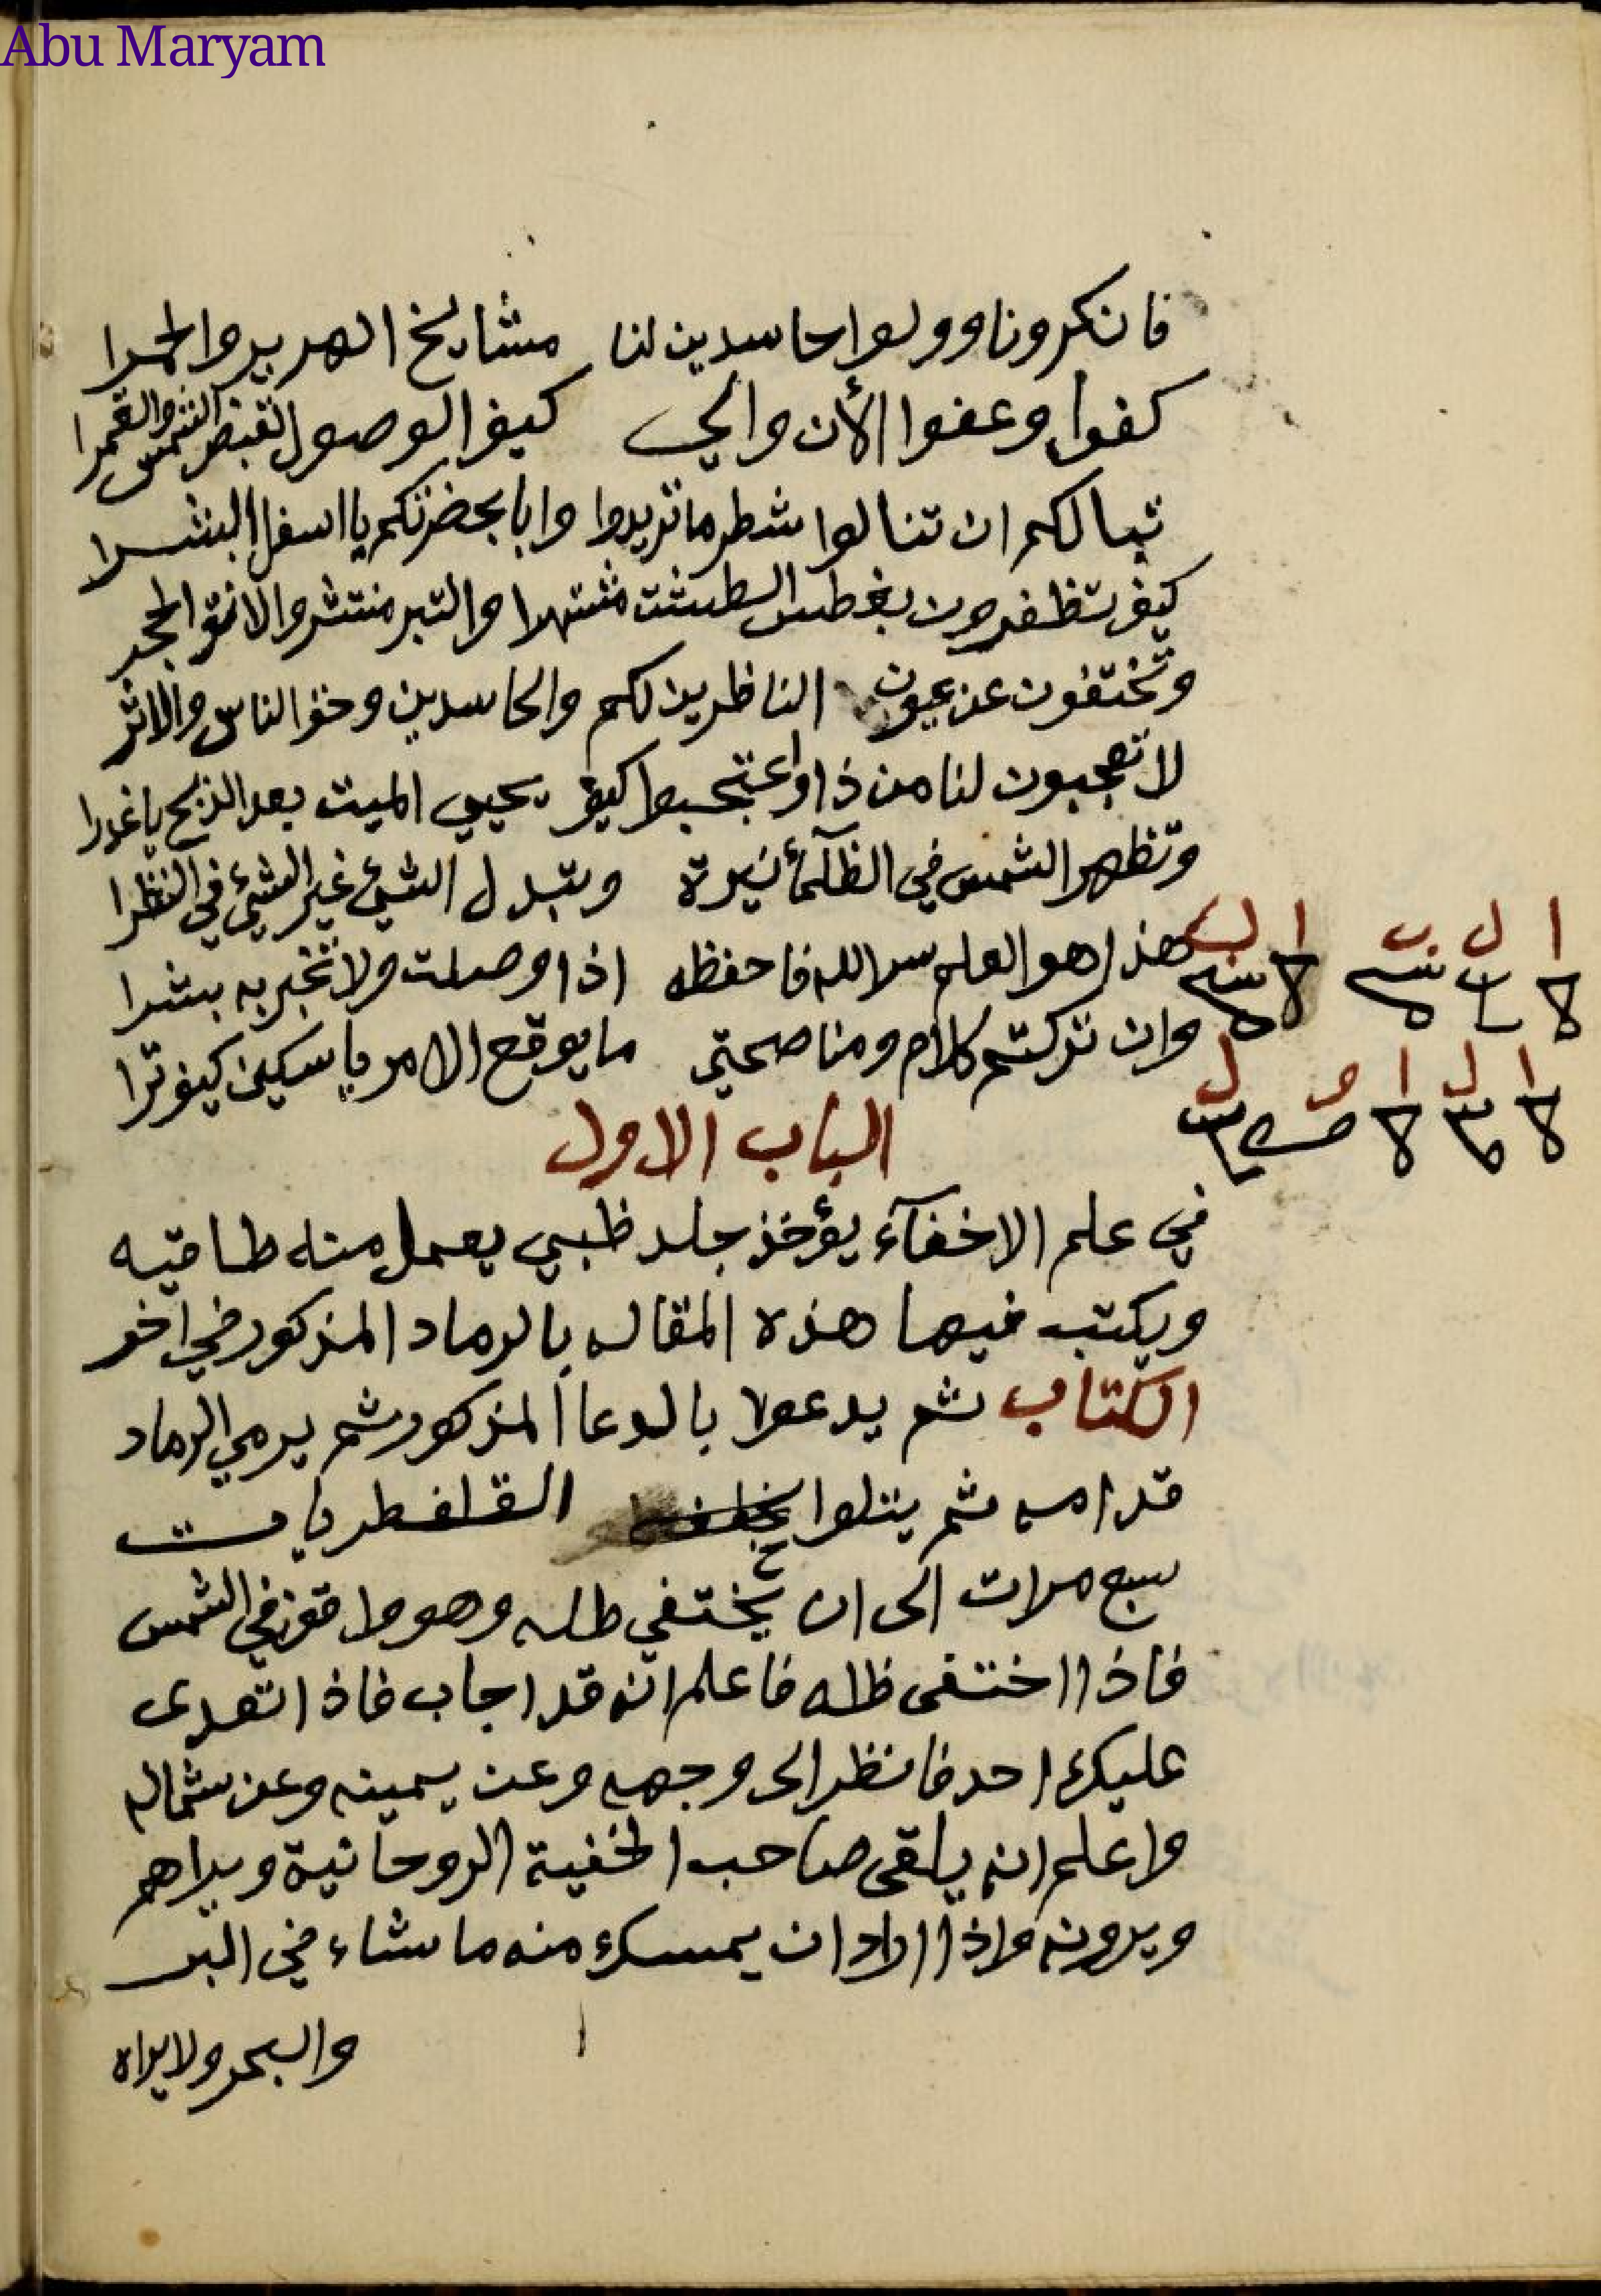 Abu Maryam
فانكرونا وولوا حاسدين لنا مشايخ الهربد والحمرا
كفوا وعفوا الأن والي كيف الوصول لقبض الشمس والقمرا
تبا لكم ان تنالوا شطر ما تريدوا وابا بحضرتكم يا اسفل البشرا
كيف تظفرون بغطس الطشت مشتهدا والتبر منتثر والانق الحجر
وتختفون عن عيون الناظرين لكم والحاسدين وحق الناس والاثر
لا تعجبون لنا من ذا واعتجبوا كيف يحيى الميت بعد الذبح يا غدرا
وتظهر الشمس في الظلمأ نيرة ويتبدل الشئ غير الشئ في النظرا
هذا هو العلم سر الله فاحفظه اذا وصلت ولا تخبر به بشرا
وان تركتم كلام ومناصحتي ما يوقع الامر يا سكين كيف ترا
ا ل ب ا ب
ا ل ا و ل
الباب الاول
في علم الاخفآء يؤخذ جلد ظبي يعمل منه طاقيه
ويكتب فيها هذه المقاله بالرماد المذكور في اخر
الكتاب ثم يدعوا بالدعا المذكور ثم يرمي الرماد
قدامه ثم يتلوا بخلفه القلفطريات
سبع مرات الى ان يختفي ظله وهو واقف في الشمس
فاذا اختفى ظله فاعلم انه قد اجاب فاذا تعدى
عليك احد فانظر الى وجهه وعن يمينه وعن شماله
واعلم انه يلقى صاحب الخفية الروحانية ويراهم
ويرونه واذا اراد ان يمسك منه ما شاء في البر
والبحر ولا يراه